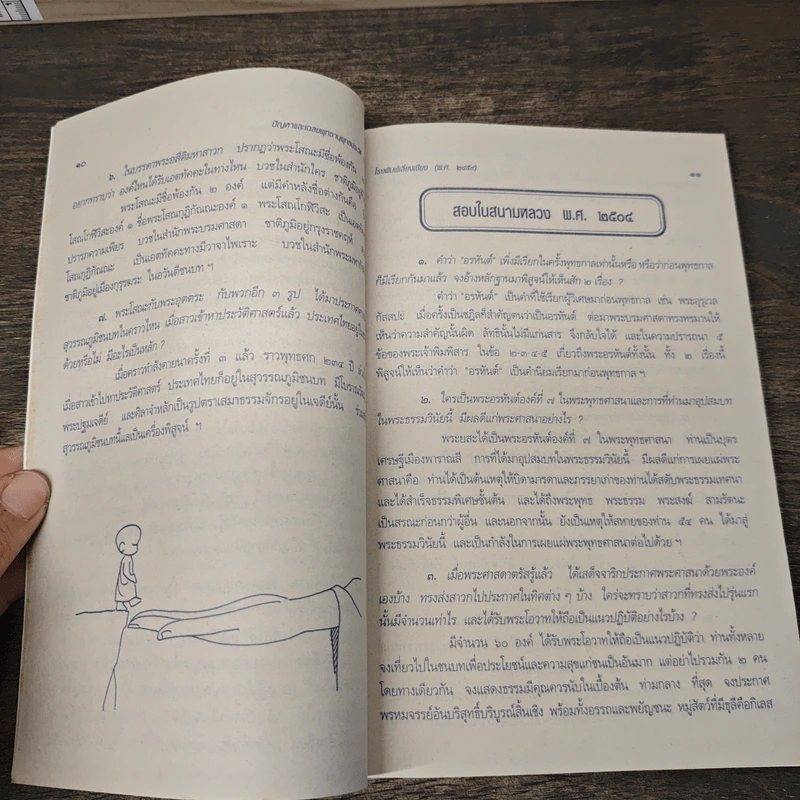 ๑๐
ปัญหาและเฉลยพุทธานุพุทธประวัติ
๖. ในบรรดาพระอสีติมหาสาวก ปรากฏว่าพระโสณะมีชื่อพ้องกัน
อยากทราบว่า องค์ไหนได้รับเอตทัคคะในทางไหน บวชในสำนักใคร ชาติภูมิอยู่
พระโสณะมีชื่อพ้องกัน ๒ องค์ แต่มีคำหลังชื่อต่างกันคือ
โสณโกฬิวิสะองค์ ๑ ชื่อพระโสณกุฏิกัณณะองค์ ๑ พระโสณโกฬิวิสะ เป็นเอตทัคคะ
ปรารภความเพียร บวชในสำนักพระบรมศาสดา ชาติภูมิอยู่กรุงราชคฤห์
โสณกุฏิกัณณะ เป็นเอตทัคคะทางมีวาจาไพเราะ บวชในสำนักพระมหา
ชาติภูมิอยู่เมืองกุรุรฆระ ในอวันตีชนบท ฯ
๗. พระโสณะกับพระอุตตระ กับพวกอีก ๓ รูป ได้มาประกาศ
สุวรรณภูมิชนบทในคราวไหน เมื่อสาวเข้าหาประวัติศาสตร์แล้ว ประเทศไทยอยู่ใน
ด้วยหรือไม่ มีอะไรเป็นหลัก ?
เมื่อคราวทำสังคายนาครั้งที่ ๓ แล้ว ราวพุทธศก ๒๓๔ ปี
เมื่อสาวเข้าไปหาประวัติศาสตร์ ประเทศไทยก็อยู่ในสุวรรณภูมิชนบท มีโบราณ
พระปฐมเจดีย์ และศิลาจำหลักเป็นรูปตราเสมาธรรมจักรอยู่ในเจดีย์นั้น
สุวรรณภูมิชนบทนี้แลเป็นเครื่องพิสูจน์ ฯ
โรงพิมพ์เลี่ยงเซียง (พ.ศ. ๒๕๔๙)
๑๑
สอบในสนามหลวง พ.ศ. ๒๕๐๔
๑. คำว่า "อรหันต์" เพิ่งมีเรียกในครั้งพุทธกาลเท่านั้นหรือ หรือว่าก่อนพุทธกาล
ก็มีเรียกกันมาแล้ว จงอ้างหลักฐานมาพิสูจน์ให้เห็นสัก ๒ เรื่อง ?
คำว่า "อรหันต์" เป็นคำที่ใช้เรียกผู้วิเศษมาก่อนพุทธกาล เช่น พระอุรุเวล
กัสสปะ เมื่อครั้งเป็นชฎิลก็สำคัญตนว่าเป็นอรหันต์ ต่อมาพระบรมศาสดาทรงทรมานให้
เห็นว่าความสำคัญนั้นผิด ลัทธินั้นไม่มีแก่นสาร จึงกลับใจได้ และในความปรารถนา ๕
ข้อของพระเจ้าพิมพิสาร ในข้อ ๒-๓-๔-๕ เกี่ยวถึงพระอรหันต์ทั้งนั้น ทั้ง ๒ เรื่องนี้
พิสูจน์ให้เห็นว่าคำว่า "อรหันต์" เป็นคำนิยมเรียกมาก่อนพุทธกาล ฯ
๒. ใครเป็นพระอรหันต์องค์ที่ ๗ ในพระพุทธศาสนาและการที่ท่านมาอุปสมบท
ในพระธรรมวินัยนี้ มีผลดีแก่พระศาสนาอย่างไร ?
พระยสะได้เป็นพระอรหันต์องค์ที่ ๗ ในพุทธศาสนา ท่านเป็นบุตร
เศรษฐีเมืองพาราณสี การที่ได้มาอุปสมบทในพระธรรมวินัยนี้ มีผลดีแก่การเผยแผ่พระ
ศาสนาคือ ท่านได้เป็นต้นเหตุให้บิดามารดาและภรรยาเก่าของท่านได้สดับพระธรรมเทศนา
และได้สำเร็จธรรมพิเศษชั้นต้น และได้ถึงพระพุทธ พระธรรม พระสงฆ์ สามรัตนะ
เป็นสรณะก่อนกว่าผู้อื่น และนอกจากนั้น ยังเป็นเหตุให้สหายของท่าน ๕๔ คน ได้มาสู่
พระธรรมวินัยนี้ และเป็นกำลังในการเผยแผ่พระพุทธศาสนาต่อไปด้วย ฯ
๓. เมื่อพระศาสดาตรัสรู้แล้ว ได้เสด็จจาริกประกาศพระศาสนาด้วยพระองค์
เองบ้าง ทรงส่งสาวกไปประกาศในทิศต่าง ๆ บ้าง ใคร่จะทราบว่าสาวกที่ทรงส่งไปรุ่นแรก
นั้นมีจำนวนเท่าไร และได้รับพระโอวาทให้ถือเป็นแนวปฏิบัติอย่างไรบ้าง ?
มีจำนวน ๖๐ องค์ ได้รับพระโอวาทให้ถือเป็นแนวปฏิบัติว่า ท่านทั้งหลาย
จงเที่ยวไปในชนบทเพื่อประโยชน์และความสุขแก่ชนเป็นอันมาก แต่อย่าไปรวมกัน ๒ คน
โดยทางเดียวกัน จงแสดงธรรมมีคุณควรนับในเบื้องต้น ท่ามกลาง ที่สุด จงประกาศ
พรหมจรรย์อันบริสุทธิ์บริบูรณ์สิ้นเชิง พร้อมทั้งอรรถและพยัญชนะ หมู่สัตว์ที่มีธุลีคือกิเลส